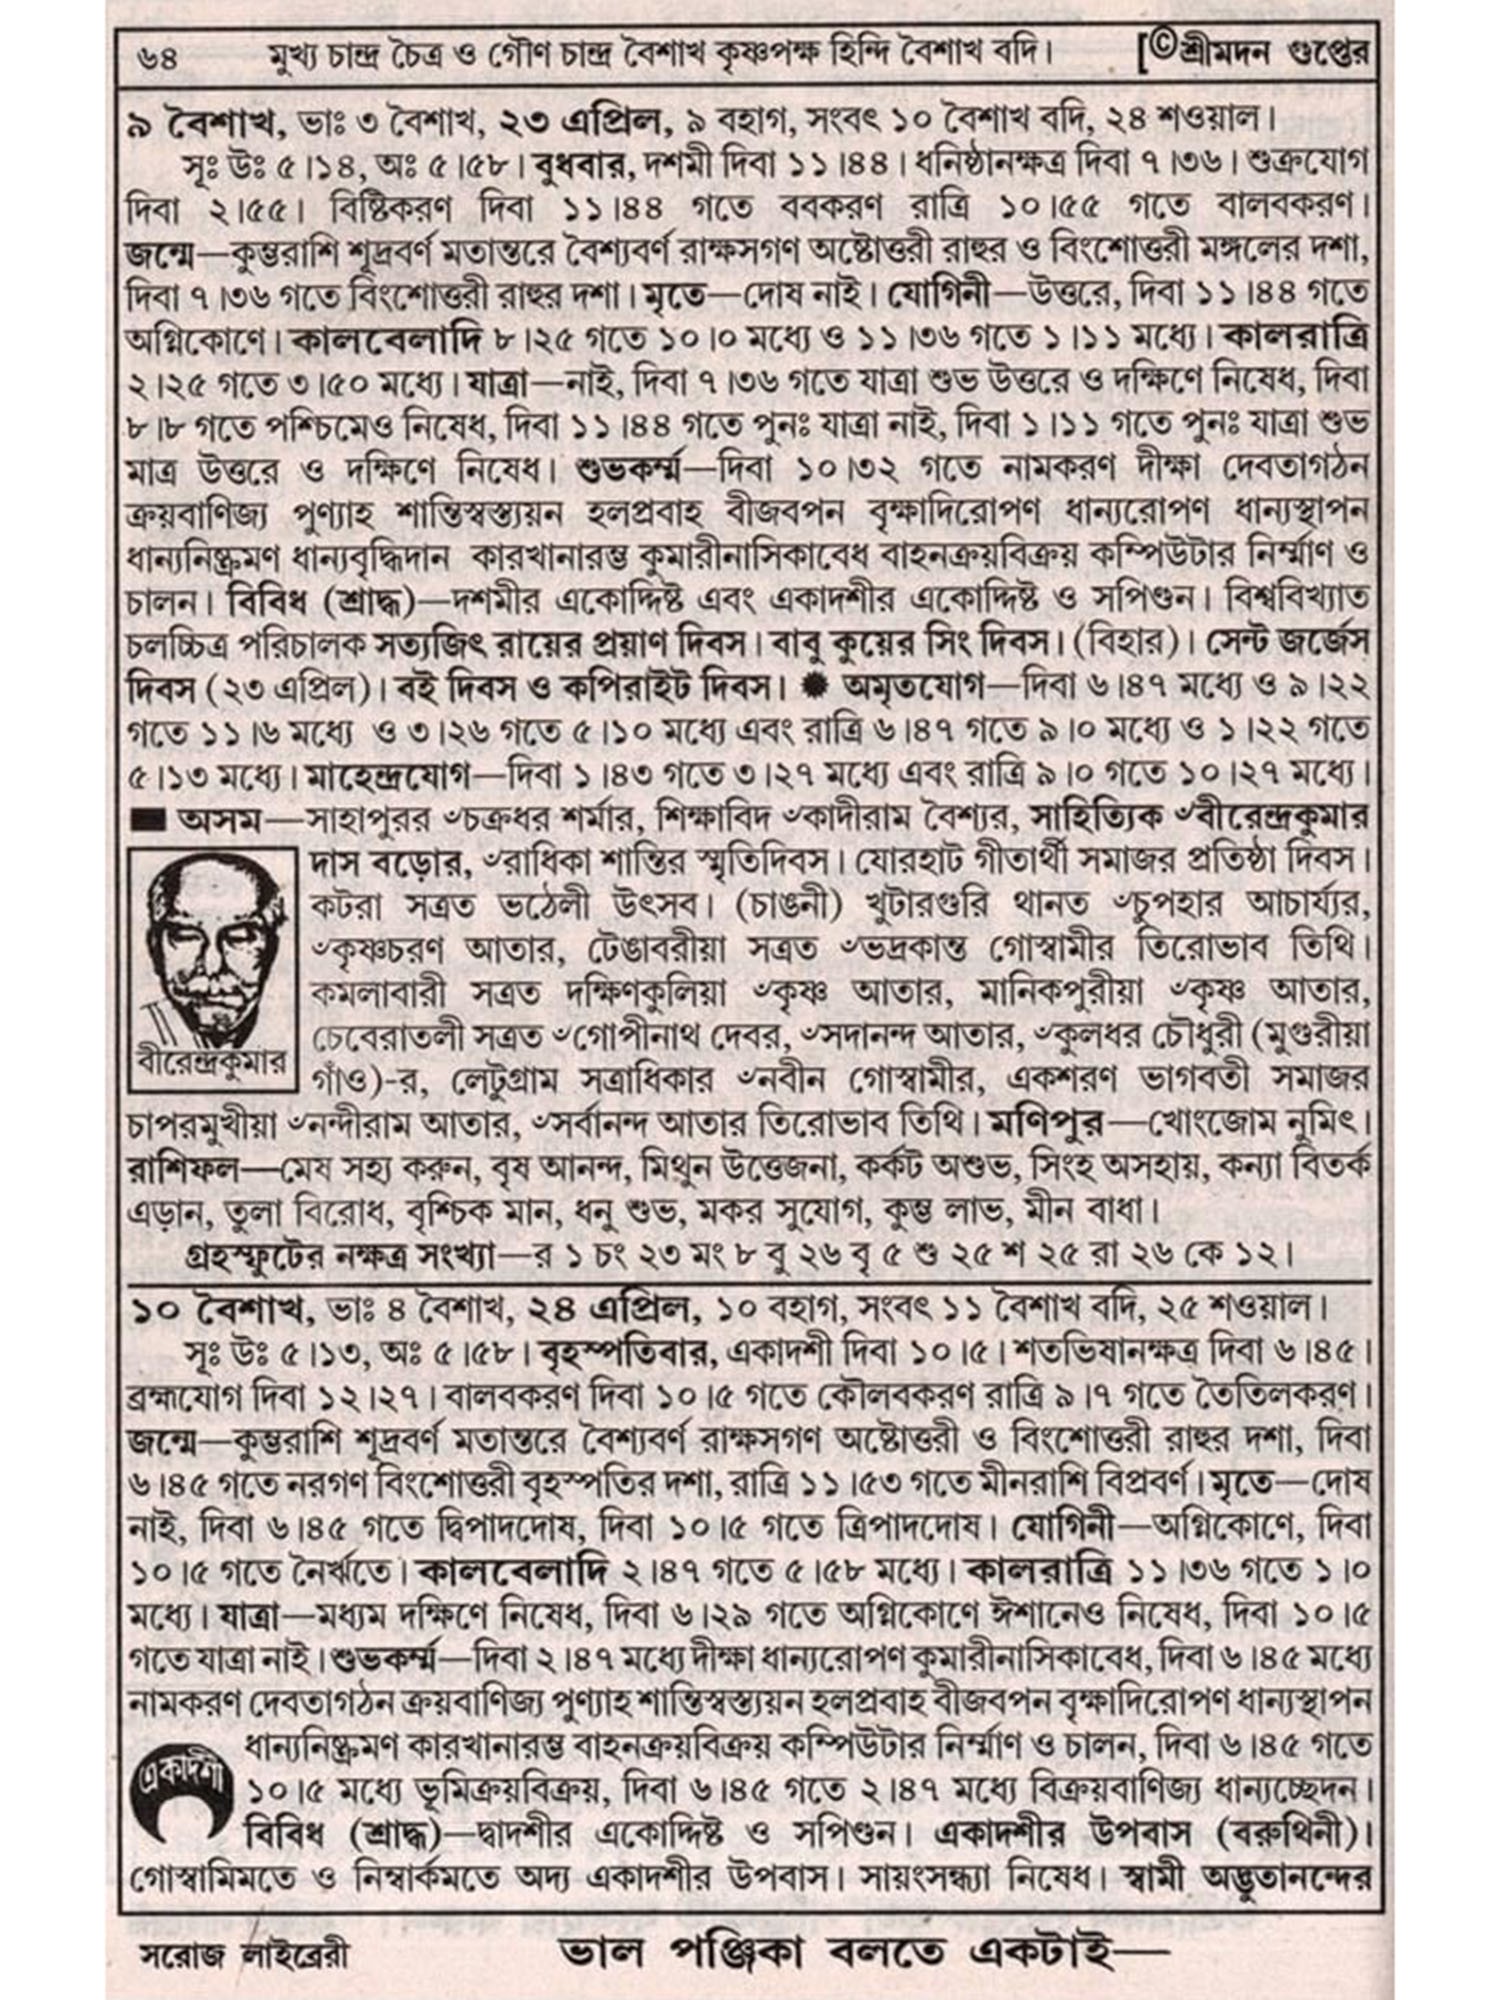 ৬৪ মুখ্য চান্দ্র চৈত্র ও গৌণ চান্দ্র বৈশাখ কৃষ্ণপক্ষ হিন্দি বৈশাখ বদি। [©শ্রীমদন গুপ্তের
৯ বৈশাখ, ভাঃ ৩ বৈশাখ, ২৩ এপ্রিল, ৯ বহাগ, সংবৎ ১০ বৈশাখ বদি, ২৪ শওয়াল।
সূঃ উঃ ৫।১৪, অঃ ৫।৫৮। বুধবার, দশমী দিবা ১১।৪৪। ধনিষ্ঠানক্ষত্র দিবা ৭।৩৬। শুক্রযোগ
দিবা ২।৫৫। বিষ্টিকরণ দিবা ১১।৪৪ গতে ববকরণ রাত্রি ১০।৫৫ গতে বালবকরণ।
জন্মে—কুম্ভরাশি শূদ্রবর্ণ মতান্তরে বৈশ্যবর্ণ রাক্ষসগণ অষ্টোত্তরী রাহুর ও বিংশোত্তরী মঙ্গলের দশা,
দিবা ৭।৩৬ গতে বিংশোত্তরী রাহুর দশা। মৃতে—দোষ নাই। যোগিনী—উত্তরে, দিবা ১১।৪৪ গতে
অগ্নিকোণে। কালবেলাদি ৮।২৫ গতে ১০।০ মধ্যে ও ১১।৩৬ গতে ১।১১ মধ্যে। কালরাত্রি
২।২৫ গতে ৩।৫০ মধ্যে। যাত্রা—নাই, দিবা ৭।৩৬ গতে যাত্রা শুভ উত্তরে ও দক্ষিণে নিষেধ, দিবা
৮।৮ গতে পশ্চিমেও নিষেধ, দিবা ১১।৪৪ গতে পুনঃ যাত্রা নাই, দিবা ১।১১ গতে পুনঃ যাত্রা শুভ
মাত্র উত্তরে ও দক্ষিণে নিষেধ। শুভকর্ম্ম—দিবা ১০।৩২ গতে নামকরণ দীক্ষা দেবতাগঠন
ক্রয়বাণিজ্য পুণ্যাহ শান্তিস্বস্ত্যয়ন হলপ্রবাহ বীজবপন বৃক্ষাদিরোপণ ধান্যরোপণ ধান্যস্থাপন
ধান্যনিষ্ক্রমণ ধান্যবৃদ্ধিদান কারখানারম্ভ কুমারীনাসিকাবেধ বাহনক্রয়বিক্রয় কম্পিউটার নির্ম্মাণ ও
চালন। বিবিধ (শ্রাদ্ধ)—দশমীর একোদ্দিষ্ট এবং একাদশীর একোদ্দিষ্ট ও সপিণ্ডন। বিশ্ববিখ্যাত
চলচ্চিত্র পরিচালক সত্যজিৎ রায়ের প্রয়াণ দিবস। বাবু কুয়ের সিং দিবস। (বিহার)। সেন্ট জর্জেস
দিবস (২৩ এপ্রিল)। বই দিবস ও কপিরাইট দিবস। ✹ অমৃতযোগ—দিবা ৬।৪৭ মধ্যে ও ৯।২২
গতে ১১।৬ মধ্যে ও ৩।২৬ গতে ৫।১০ মধ্যে এবং রাত্রি ৬।৪৭ গতে ৯।০ মধ্যে ও ১।২২ গতে
৫।১৩ মধ্যে। মাহেন্দ্রযোগ—দিবা ১।৪৩ গতে ৩।২৭ মধ্যে এবং রাত্রি ৯।০ গতে ১০।২৭ মধ্যে।
■ অসম—সাহাপুরর ৺চক্রধর শর্মার, শিক্ষাবিদ ৺কাদীরাম বৈশ্যর, সাহিত্যিক ৺বীরেন্দ্রকুমার
দাস বড়োর, ৺রাধিকা শান্তির স্মৃতিদিবস। যোরহাট গীতার্থী সমাজর প্রতিষ্ঠা দিবস।
কটরা সত্রত ভঠেলী উৎসব। (চাঙনী) খুটারগুরি থানত ৺চুপহার আচার্য্যর,
৺কৃষ্ণচরণ আতার, টেঙাবরীয়া সত্রত ৺ভদ্রকান্ত গোস্বামীর তিরোভাব তিথি।
কমলাবারী সত্রত দক্ষিণকুলিয়া ৺কৃষ্ণ আতার, মানিকপুরীয়া ৺কৃষ্ণ আতার,
চেবেরাতলী সত্রত ৺গোপীনাথ দেবর, ৺সদানন্দ আতার, ৺কুলধর চৌধুরী (মুগুরীয়া
বীরেন্দ্রকুমার
গাঁও)-র, লেটুগ্রাম সত্রাধিকার ৺নবীন গোস্বামীর, একশরণ ভাগবতী সমাজর
চাপরমুখীয়া ৺নন্দীরাম আতার, ৺সর্বানন্দ আতার তিরোভাব তিথি। মণিপুর—খোংজোম নুমিৎ।
রাশিফল—মেষ সহ্য করুন, বৃষ আনন্দ, মিথুন উত্তেজনা, কর্কট অশুভ, সিংহ অসহায়, কন্যা বিতর্ক
এড়ান, তুলা বিরোধ, বৃশ্চিক মান, ধনু শুভ, মকর সুযোগ, কুম্ভ লাভ, মীন বাধা।
গ্রহস্ফুটের নক্ষত্র সংখ্যা—র ১ চং ২৩ মং ৮ বু ২৬ বৃ ৫ শু ২৫ শ ২৫ রা ২৬ কে ১২।
১০ বৈশাখ, ভাঃ ৪ বৈশাখ, ২৪ এপ্রিল, ১০ বহাগ, সংবৎ ১১ বৈশাখ বদি, ২৫ শওয়াল।
সূঃ উঃ ৫।১৩, অঃ ৫।৫৮। বৃহস্পতিবার, একাদশী দিবা ১০।৫। শতভিষানক্ষত্র দিবা ৬।৪৫।
ব্রহ্মযোগ দিবা ১২।২৭। বালবকরণ দিবা ১০।৫ গতে কৌলবকরণ রাত্রি ৯।৭ গতে তৈতিলকরণ।
জন্মে—কুম্ভরাশি শূদ্রবর্ণ মতান্তরে বৈশ্যবর্ণ রাক্ষসগণ অষ্টোত্তরী ও বিংশোত্তরী রাহুর দশা, দিবা
৬।৪৫ গতে নরগণ বিংশোত্তরী বৃহস্পতির দশা, রাত্রি ১১।৫৩ গতে মীনরাশি বিপ্রবর্ণ। মৃতে—দোষ
নাই, দিবা ৬।৪৫ গতে দ্বিপাদদোষ, দিবা ১০।৫ গতে ত্রিপাদদোষ। যোগিনী—অগ্নিকোণে, দিবা
১০।৫ গতে নৈর্ঋতে। কালবেলাদি ২।৪৭ গতে ৫।৫৮ মধ্যে। কালরাত্রি ১১।৩৬ গতে ১।০
মধ্যে। যাত্রা—মধ্যম দক্ষিণে নিষেধ, দিবা ৬।২৯ গতে অগ্নিকোণে ঈশানেও নিষেধ, দিবা ১০।৫
গতে যাত্রা নাই। শুভকর্ম্ম—দিবা ২।৪৭ মধ্যে দীক্ষা ধান্যরোপণ কুমারীনাসিকাবেধ, দিবা ৬।৪৫ মধ্যে
নামকরণ দেবতাগঠন ক্রয়বাণিজ্য পুণ্যাহ শান্তিস্বস্ত্যয়ন হলপ্রবাহ বীজবপন বৃক্ষাদিরোপণ ধান্যস্থাপন
ধান্যনিষ্ক্রমণ কারখানারম্ভ বাহনক্রয়বিক্রয় কম্পিউটার নির্ম্মাণ ও চালন, দিবা ৬।৪৫ গতে
একাদশী
১০।৫ মধ্যে ভূমিক্রয়বিক্রয়, দিবা ৬।৪৫ গতে ২।৪৭ মধ্যে বিক্রয়বাণিজ্য ধান্যচ্ছেদন।
বিবিধ (শ্রাদ্ধ)—দ্বাদশীর একোদ্দিষ্ট ও সপিণ্ডন। একাদশীর উপবাস (বরুথিনী)।
গোস্বামিমতে ও নিম্বার্কমতে অদ্য একাদশীর উপবাস। সায়ংসন্ধ্যা নিষেধ। স্বামী অদ্ভুতানন্দের
সরোজ লাইব্রেরী ভাল পঞ্জিকা বলতে একটাই—